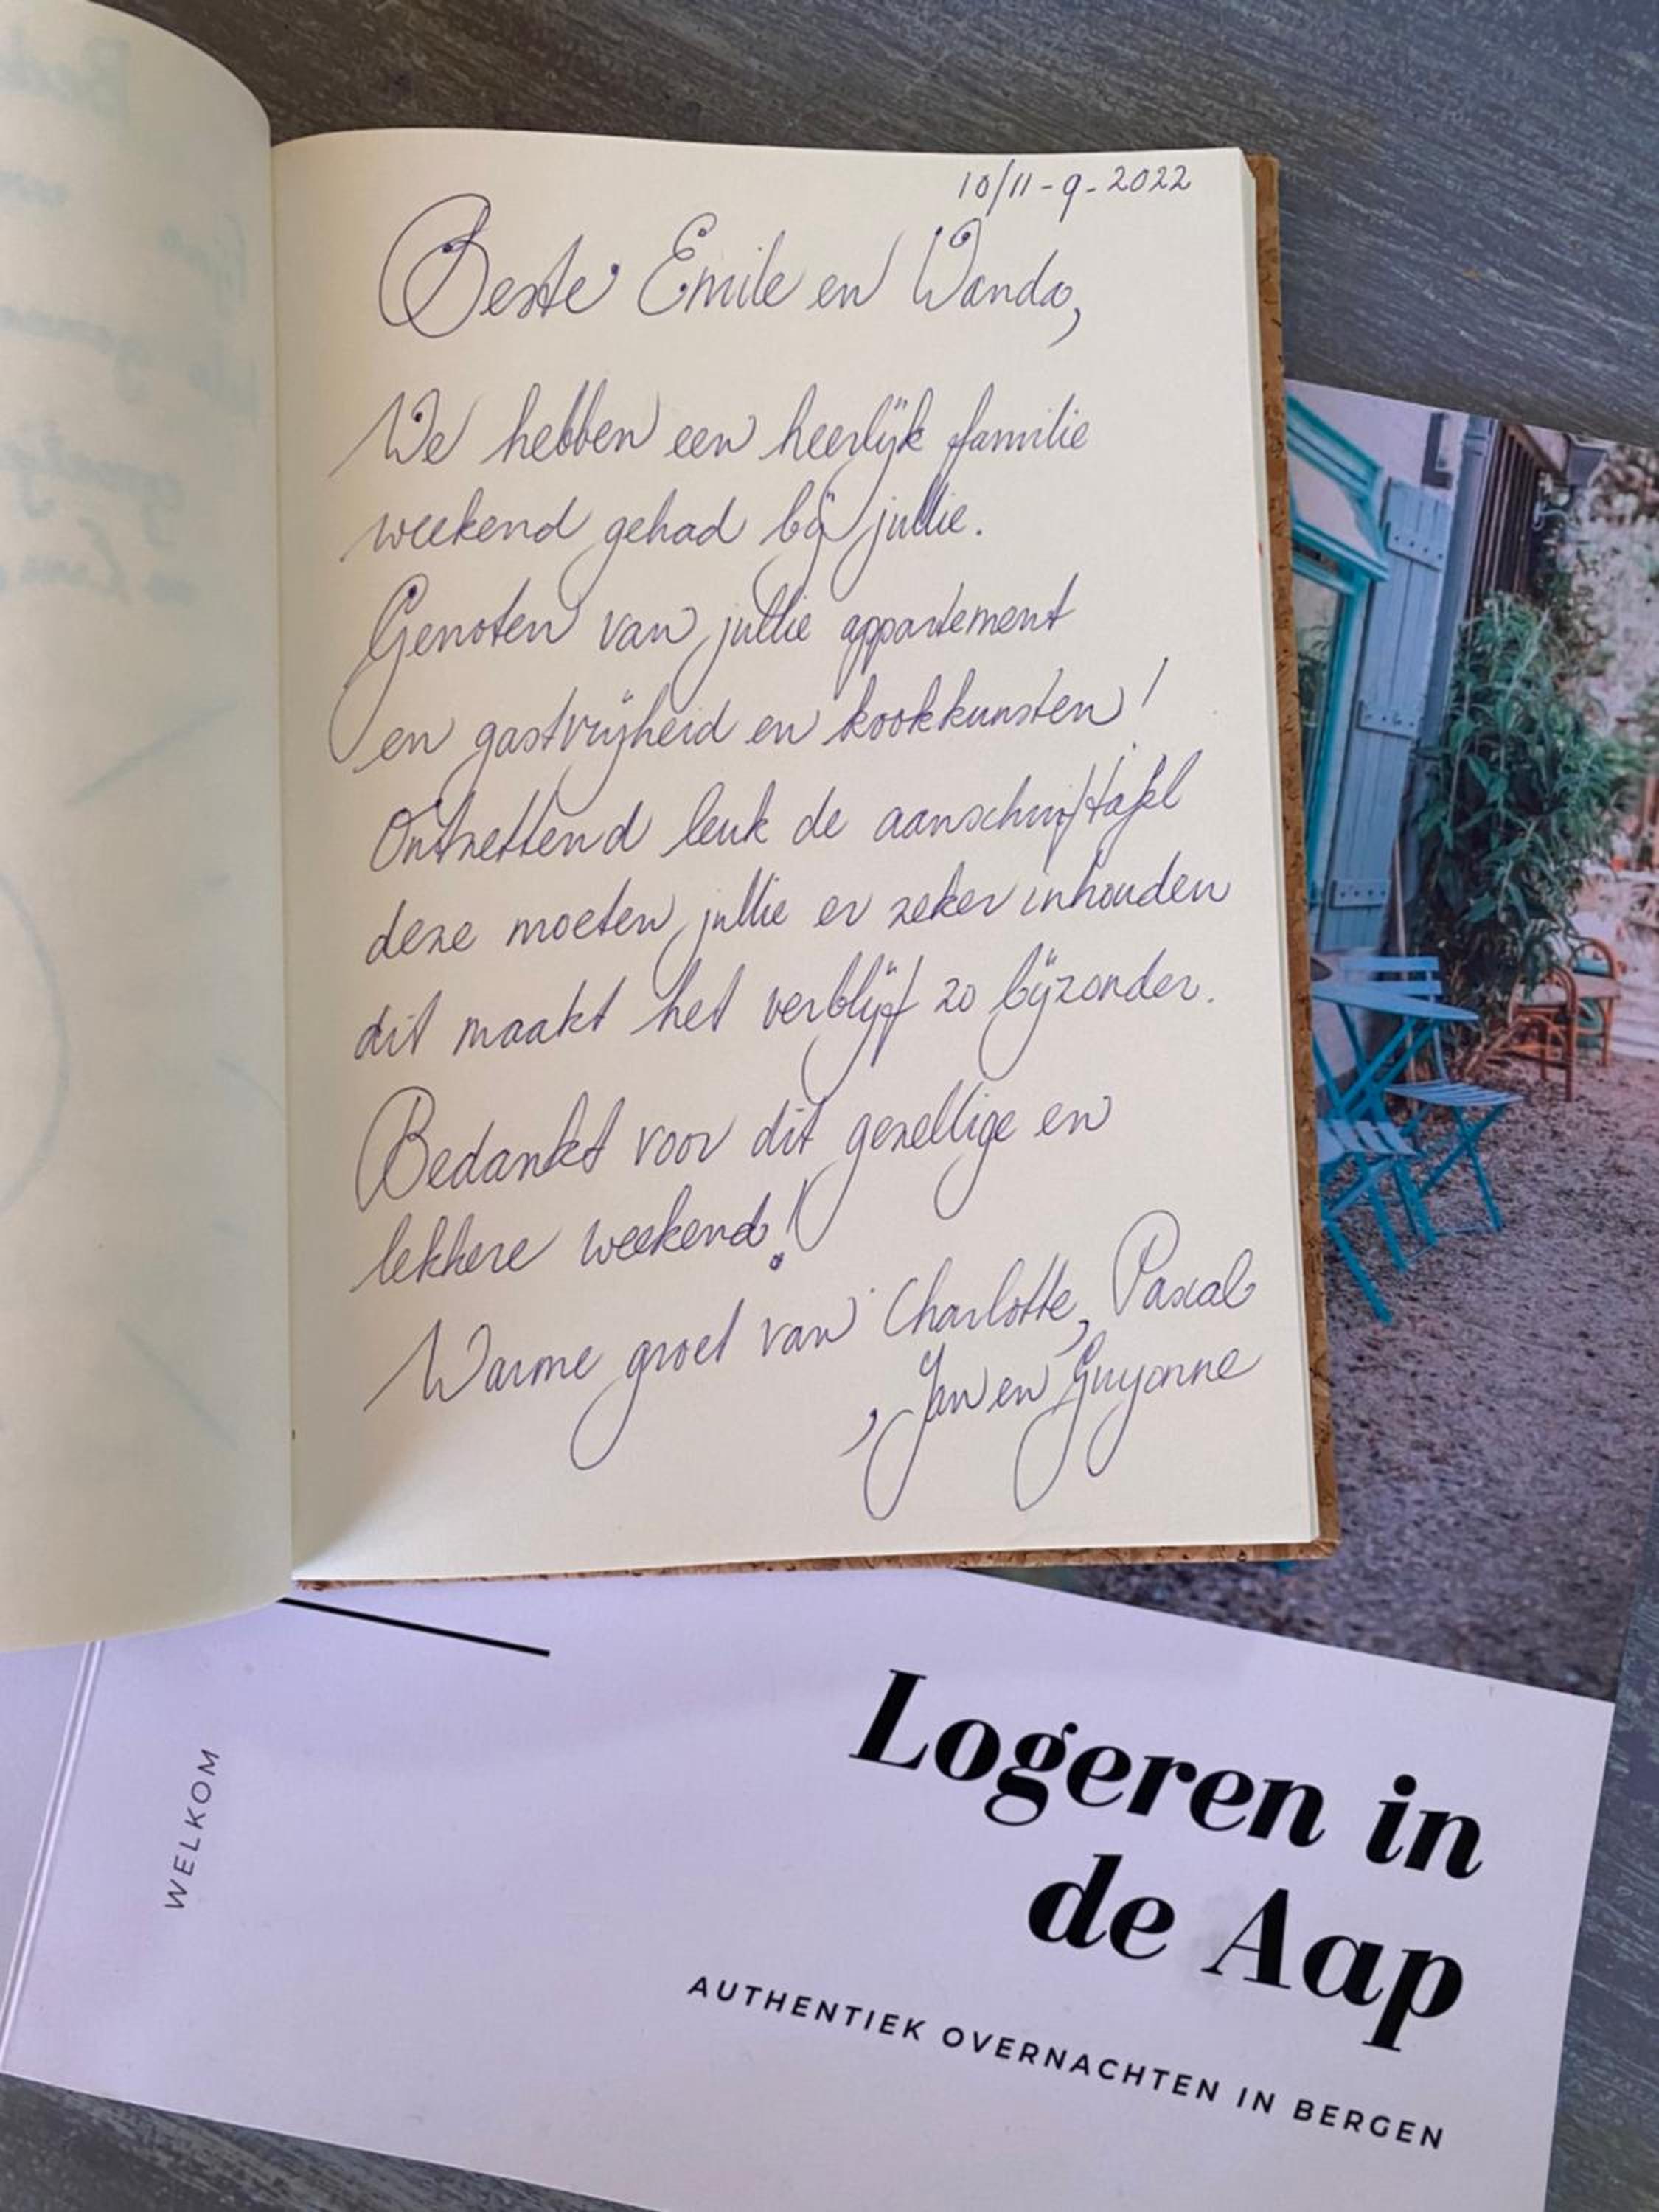 10/11-9-2022
Beste Emile en Wanda,
We hebben een heerlijk familie
weekend gehad bij jullie.
Genoten van jullie appartement
en gastvrijheid en kookkunsten!
Ontzettend leuk de aanschuiftafel
deze moeten jullie er zeker inhouden
dit maakt het verblijf zo bijzonder.
Bedankt voor dit gezellige en
lekkere weekend!
Warme groet van Charlotte, Pascal
, Jan en Guyonne
WELKOM
Logeren in
de Aap
AUTHENTIEK OVERNACHTEN IN BERGEN